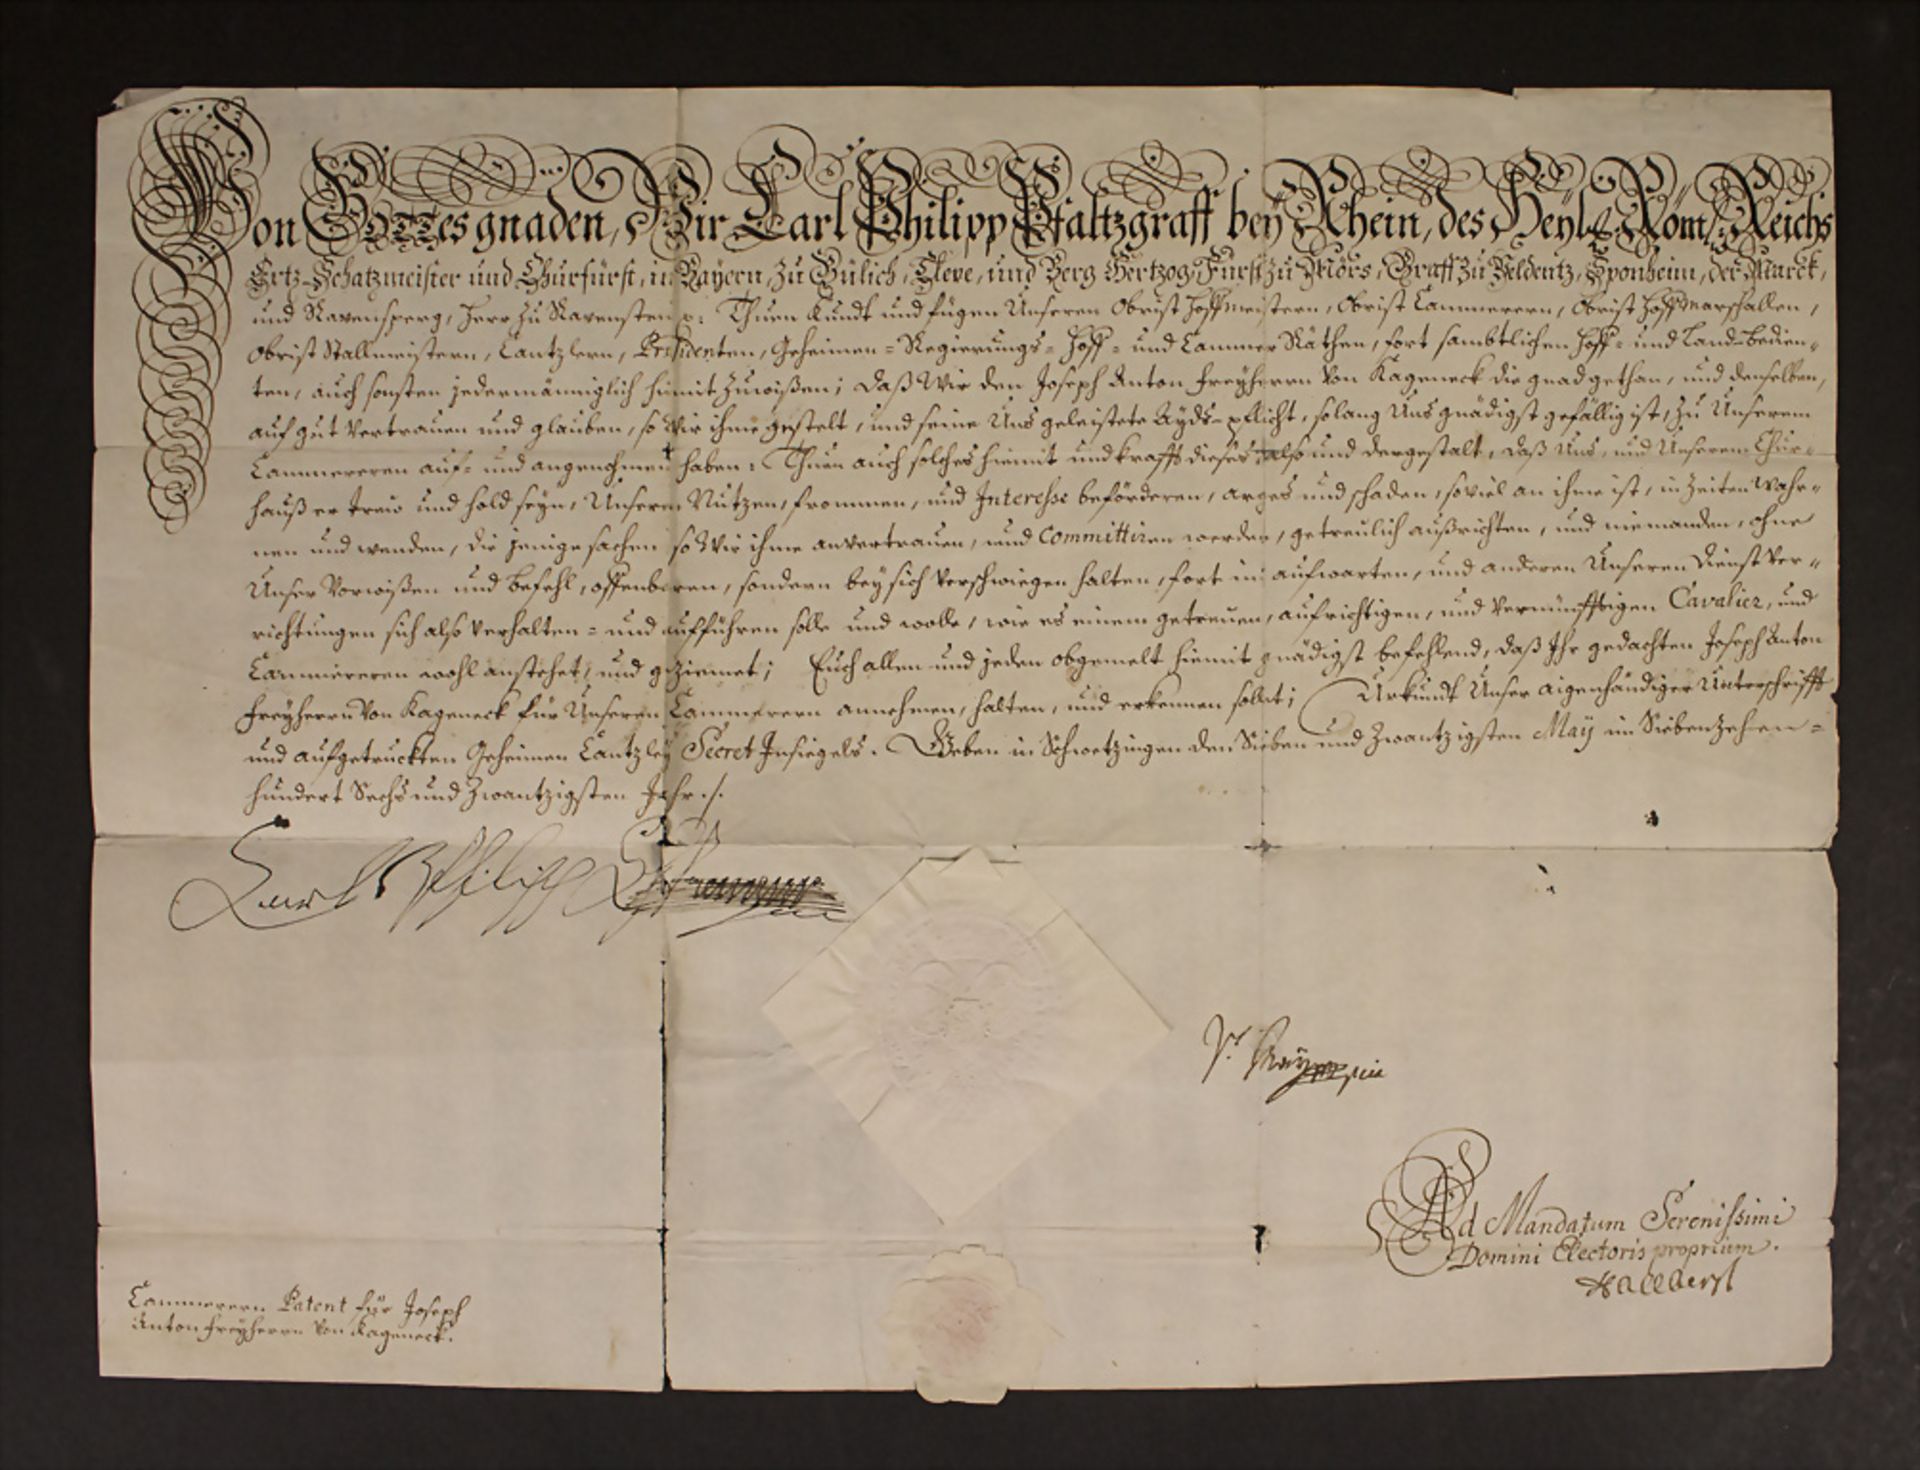 Von GOTTes gnaden, Wir Carl Philipp Pfaltzgraff bey Rhein, des Heyl: Röm: Reichs
Ertz-Schatzmeister und Churfürst, in Bayern, zu Gülich, Cleve, und Berg Hertzog, Fürst zu Mörs, Graff zu Veldentz, Sponheim, der Marck,
und Ravensperg, Herr zu Ravenstein p: Thuen kundt und fügen Unseren Obrist Hoffmeistern, Obrist Cammerern, Obrist Hoffmarschallen,
Obrist Stallmeistern, Cantzlern, Præsidenten, Geheimen- Regierungs- Hoff- und Cammer Räthen, fort sambtlichen Hoff- und Land-Bedien-
ten, auch sonsten jedermänniglich hiemit zuwißen; daß Wir dem Joseph Anton Freyherrn von Kageneck die gnad gethan, und denselben,
auf gut vertrauen und glauben, so Wir ihme gestelt, und seine Uns geleistete Ayds-pflicht, solang Uns gnädigst gefällig ist, zu Unserem
Cammereren auf- und angenohmen haben; Thuen auch solches hiemit und krafft dieses also und dergestalt, daß Uns, und Unserem Chur-
hauß er trew und hold seyn, Unseren Nutzen, frommen, und Interesse beförderen, arges und schaden, soviel an ihme ist, in Zeiten wahr-
nen und wenden, die jenige sachen so Wir ihme anvertrauen, und committiren werden, getreulich außrichten, und niemanden, ohne
Unser Vorwißen und befehl, offenbaren, sondern bey sich verschwiegen halten, fort im aufwarten, und anderen Unseren Dienst ver-
richtungen sich also verhalten- und aufführen solle und wolle, wie es einem getreuen, aufrichtigen, und vernünfftigen Cavalier, und
Cammereren wohl anstehet, und geziemet; Euch allen und jeden obgemelt hiemit gnädigst befehlend, daß Ihr gedachten Joseph Anton
Freyherrn von Kageneck für Unseren Cammerern annehmen, halten, und erkennen sollet; Urkundt Unser aigenhändiger Unterschrifft
und aufgetruckten Geheimen Cantzley Secret Insiegels. Geben in Schwetzingen den Sieben und Zwantzigsten May im Siebenzehen-
hundert Sechs und Zwantzigsten Jahr ./.
Carl Philipp Churfürst
Ad Mandatum Serenissimi
Domini Electoris proprium.
Hallberg
Cammerern Patent für Joseph
Anton Freyherrn von Kageneck.